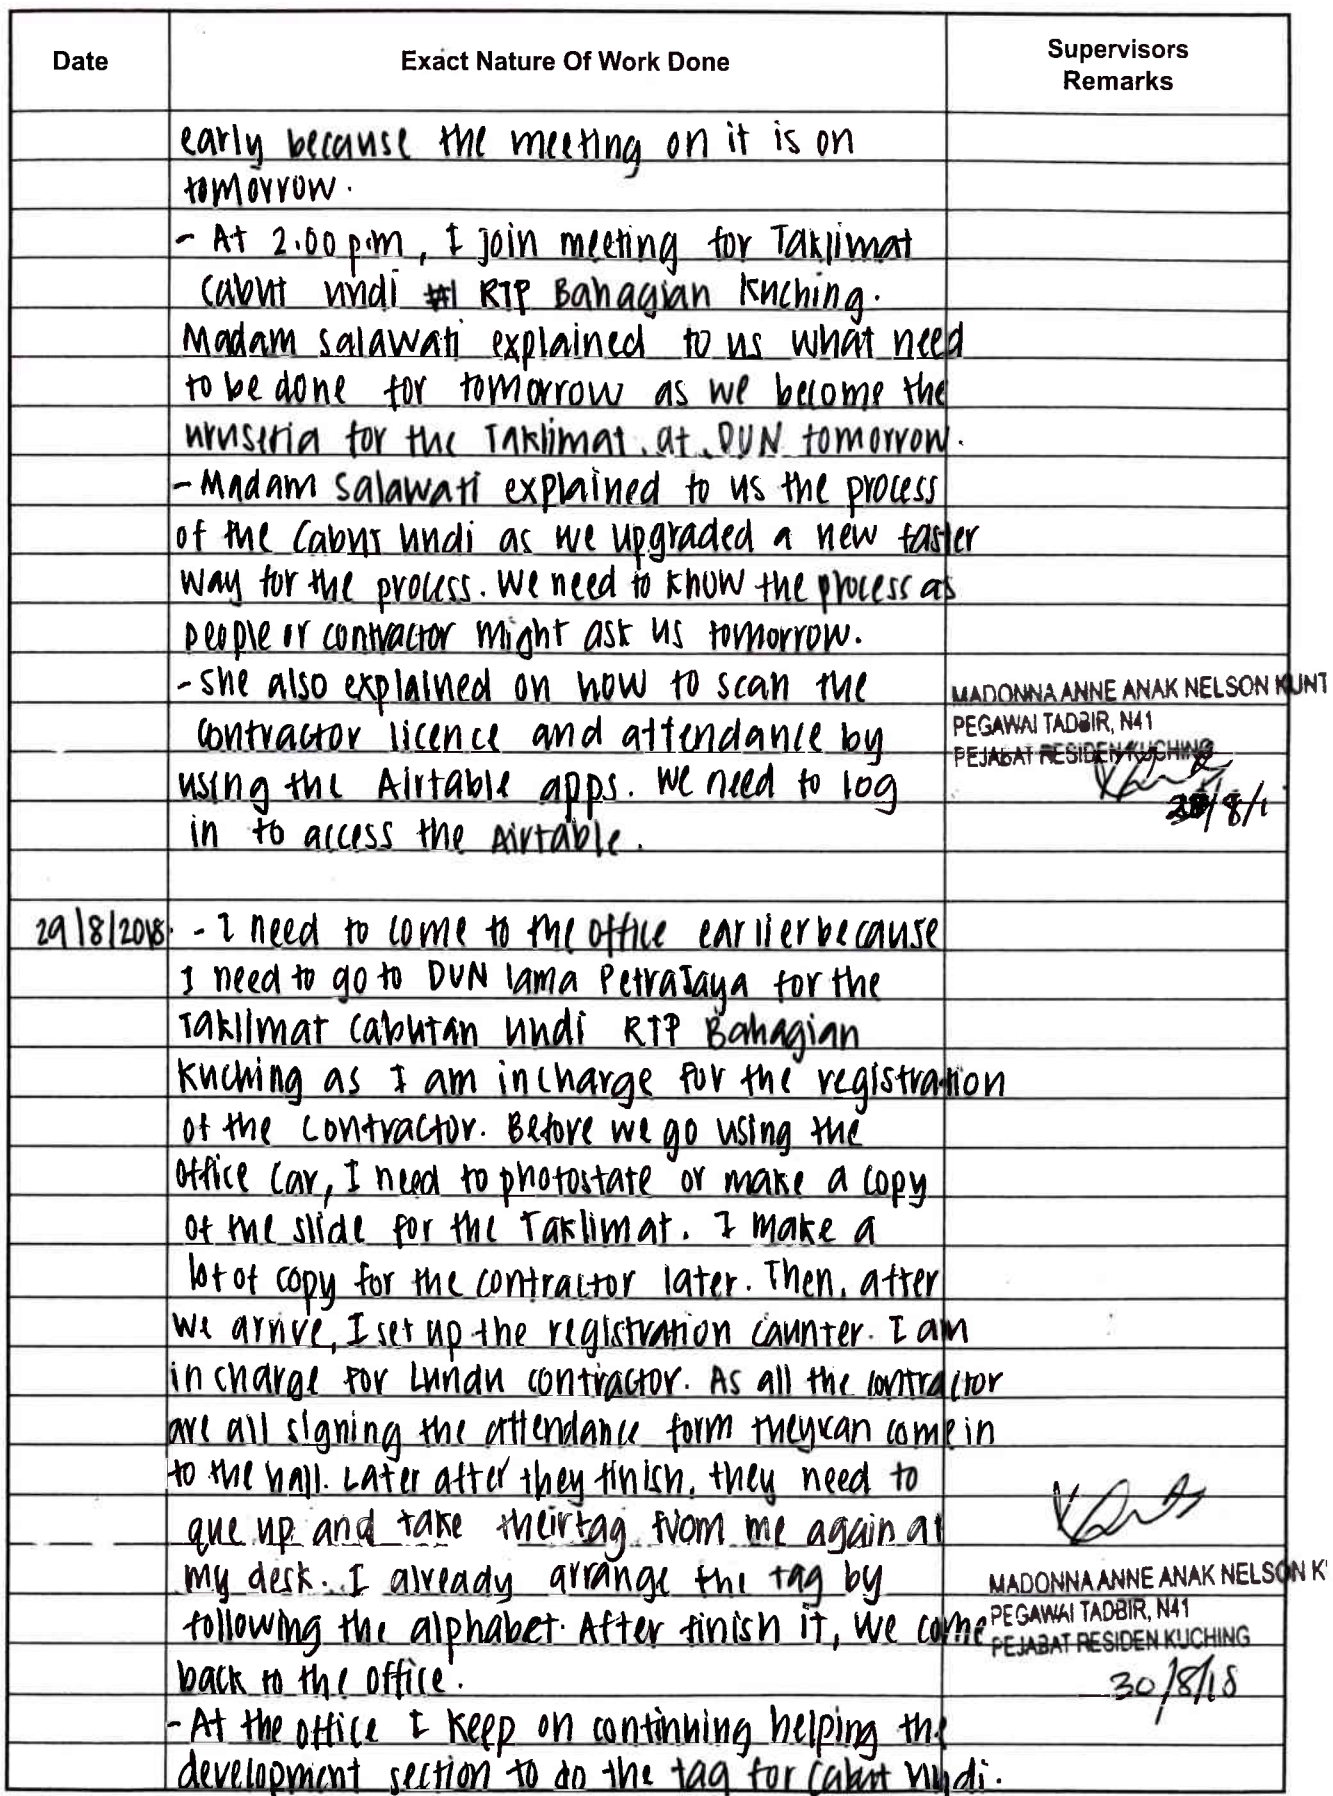 Date Exact Nature Of Work Done Supervisors Remarks
early because the meeting on it is on
tomorrow.
- At 2.00 p.m, I join meeting for Taklimat
Cabut undi RTP Bahagian Kuching.
Madam Salawati explained to us what need
to be done for tomorrow as we become the
urusetia for the Taklimat at DUN tomorrow.
- Madam Salawati explained to us the process
of the Cabut Undi as we upgraded a new faster
way for the process. We need to know the process as
people or contractor might ask us tomorrow.
- She also explained on how to scan the
contractor licence and attendance by
using the Airtable apps. We need to log
in to access the Airtable.
MADONNA ANNE ANAK NELSON KUNT
PEGAWAI TADBIR, N41
PEJABAT RESIDEN KUCHING
29/8/2018 - I need to come to the office earlier because
I need to go to DUN lama Petra Jaya for the
Taklimat Cabutan Undi RTP Bahagian
Kuching as I am in charge for the registration
of the contractor. Before we go using the
office car, I need to photostate or make a copy
of the slide for the Taklimat. I make a
lot of copy for the contractor later. Then, after
we arrive, I set up the registration counter. I am
in charge for Lundu contractor. As all the contractor
are all signing the attendance form they can come in
to the hall. Later after they finish, they need to
que up and take their tag from me again at
my desk. I already arrange the tag by
following the alphabet. After finish it, we come
back to the office.
- At the office I keep on continuing helping the
development section to do the tag for Cabut Undi.
MADONNA ANNE ANAK NELSON K
PEGAWAI TADBIR, N41
PEJABAT RESIDEN KUCHING
30/8/18